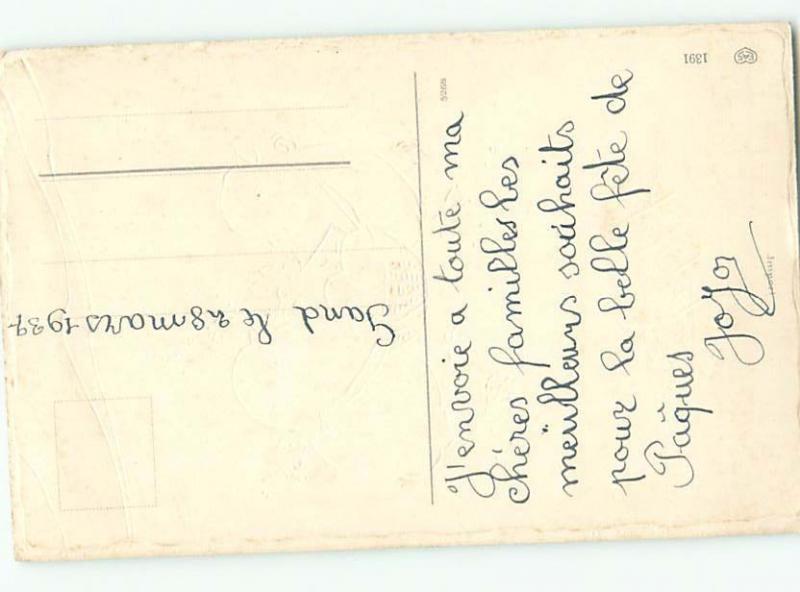 Gand le 28 mars 1937
J'envoie a toute ma
chères familles les
meïlleurs souhaits
pour la belle fête de
Pâques
JoJo
1391
EAS